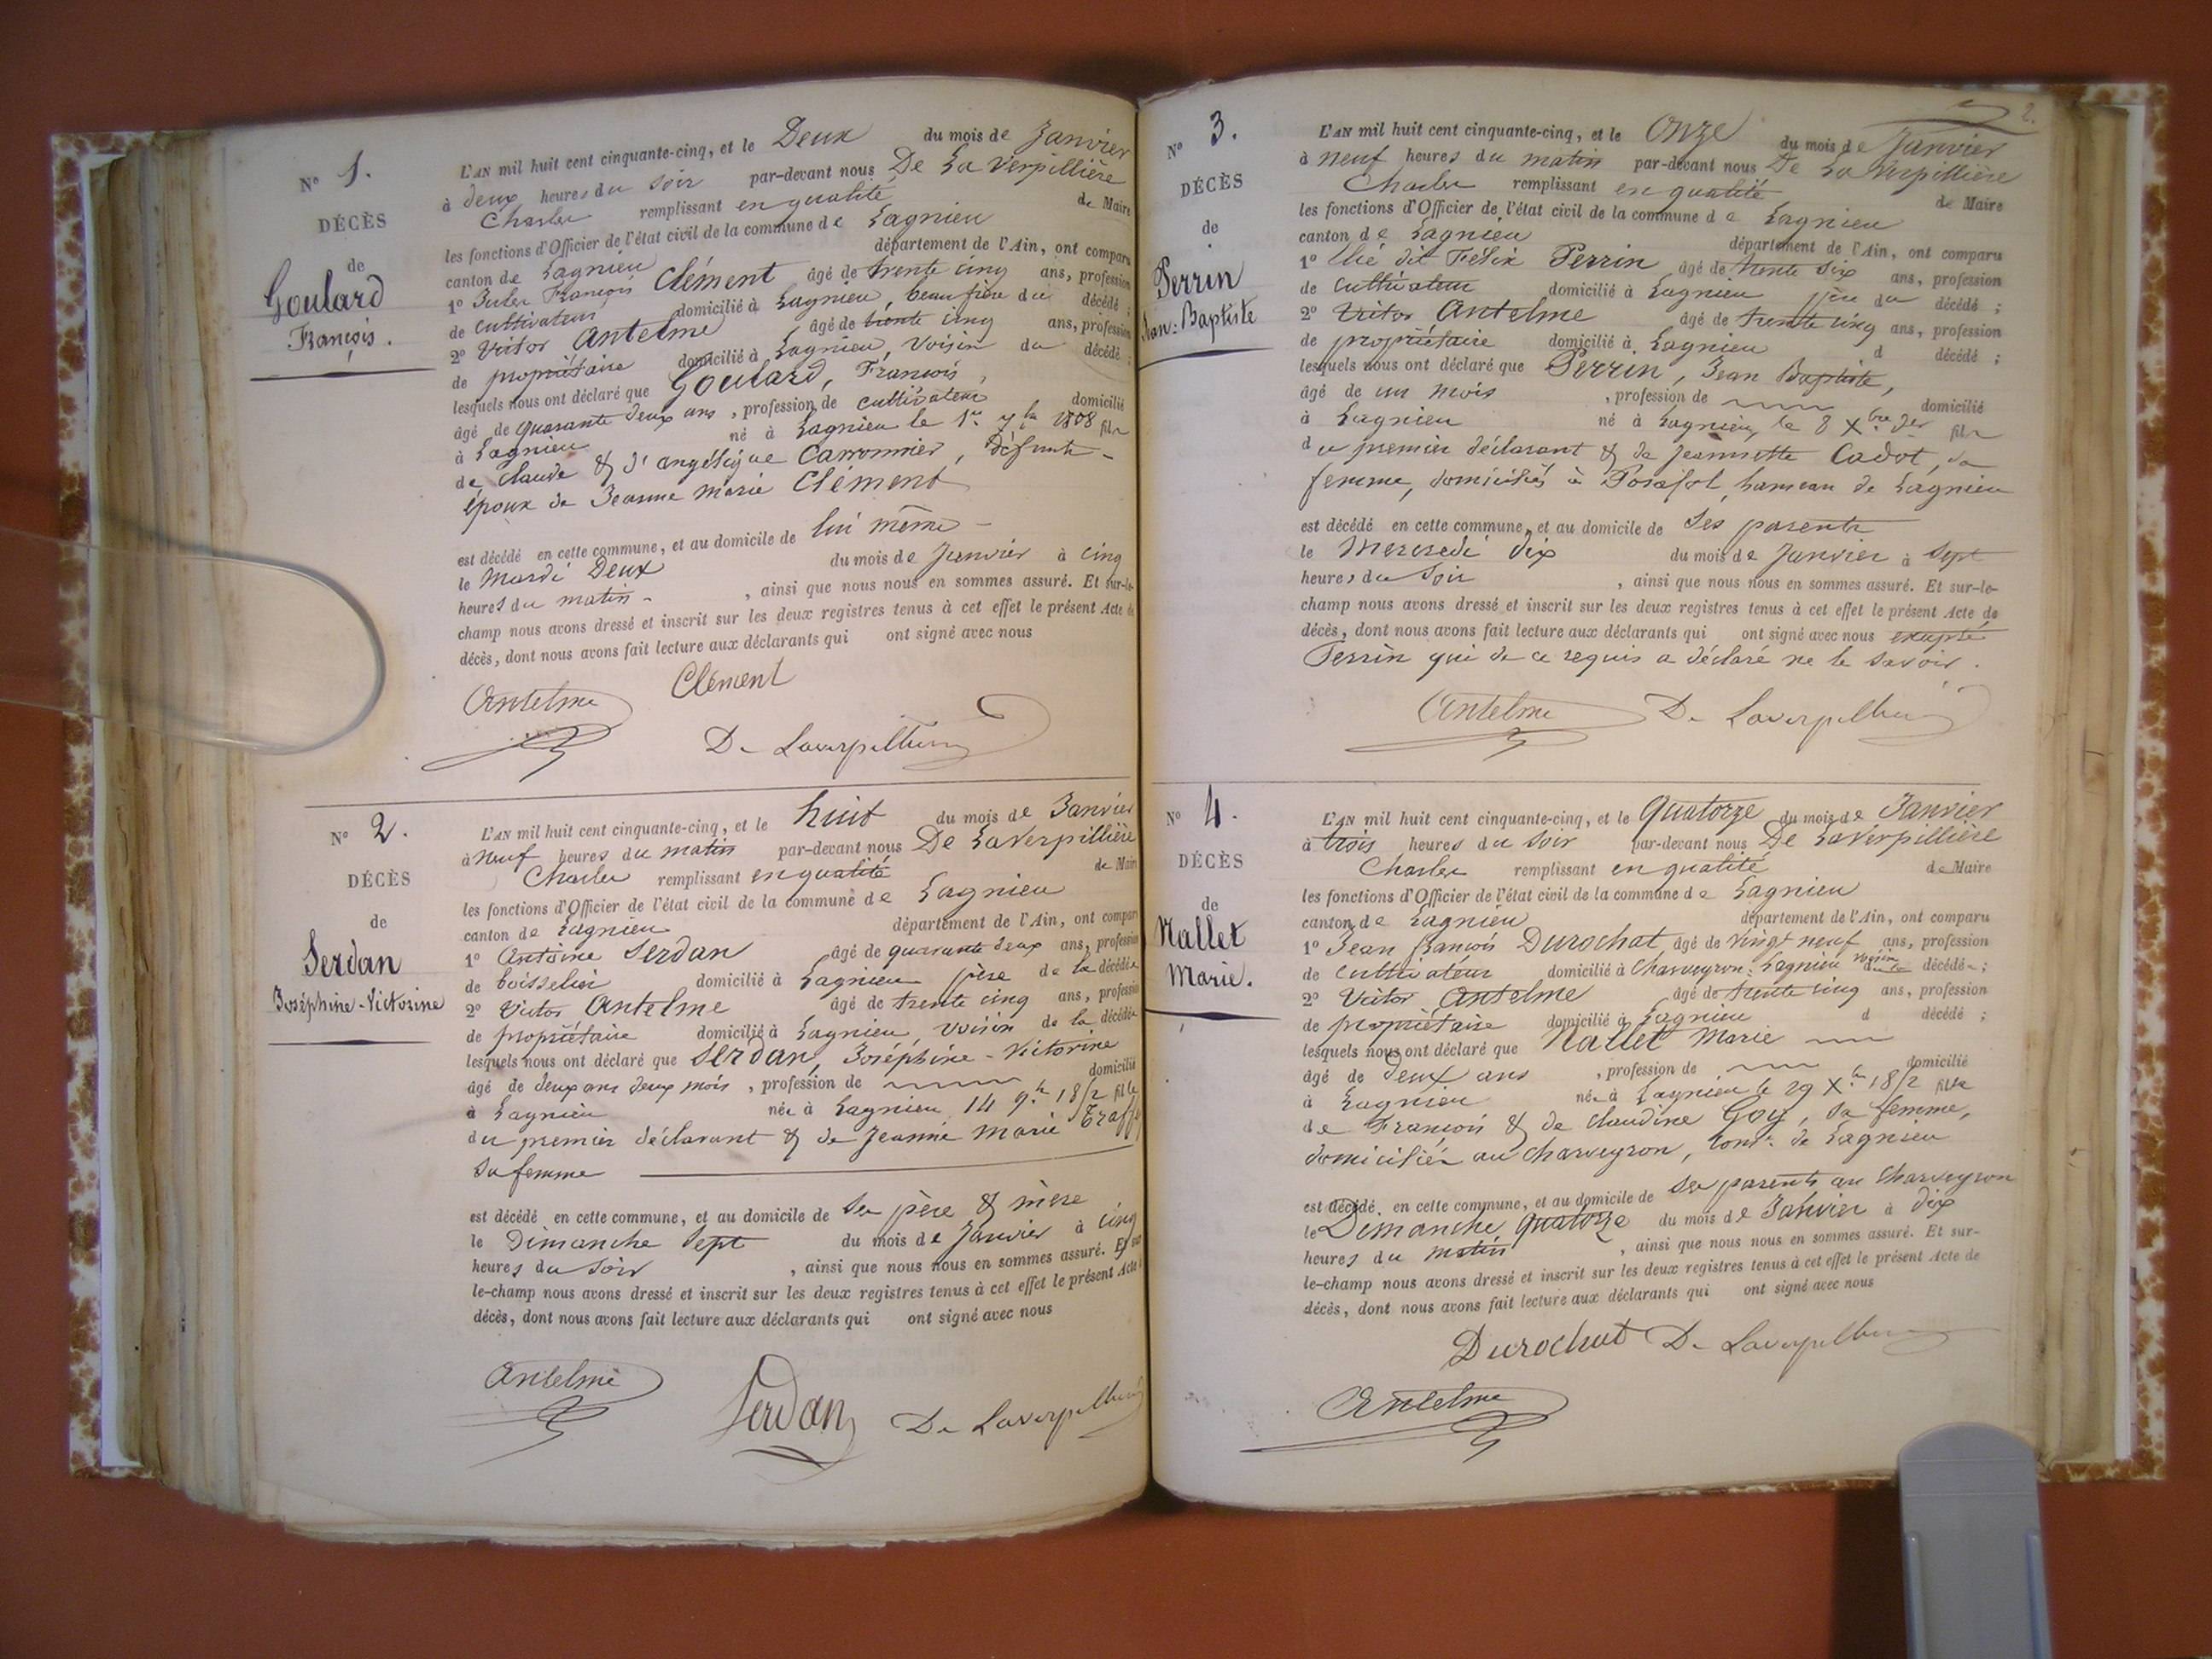 N° 1.
DÉCÈS
de
Goulard
François.
L'AN mil huit cent cinquante-cinq, et le Deux du mois de Janvier
à deux heures du soir par-devant nous De La Verpillière
Charles remplissant en qualité de Maire
les fonctions d'Officier de l'état civil de la commune de Lagnieu
canton de Lagnieu département de l'Ain, ont comparu
1° Jules François Clément âgé de trente cinq ans, profession
de cultivateur domicilié à Lagnieu, beau frère du décédé ;
2° Victor Antelme âgé de trente cinq ans, profession
de propriétaire domicilié à Lagnieu, voisin du décédé ;
lesquels nous ont déclaré que Goulard, François,
âgé de quarante deux ans, profession de cultivateur domicilié
à Lagnieu né à Lagnieu le 1er 7bre 1808 fils
de Claude & d'angélique Carronnier, défunts -
époux de Jeanne Marie Clément
est décédé en cette commune, et au domicile de lui même -
le Mardi Deux du mois de Janvier à cinq
heures du matin - , ainsi que nous nous en sommes assuré. Et sur-le-
champ nous avons dressé et inscrit sur les deux registres tenus à cet effet le présent Acte de
décès, dont nous avons fait lecture aux déclarants qui ont signé avec nous
Antelme Clément
De Laverpillière
N° 2.
DÉCÈS
de
Serdan
Joséphine-Victorine
L'AN mil huit cent cinquante-cinq, et le huit du mois de Janvier
à neuf heures du matin par-devant nous De LaVerpillière
Charles remplissant en qualité de Maire
les fonctions d'Officier de l'état civil de la commune de Lagnieu
canton de Lagnieu département de l'Ain, ont comparu
1° Antoine Serdan âgé de quarante deux ans, profession
de boisselier domicilié à Lagnieu père de la décédée
2° Victor Antelme âgé de trente cinq ans, profession
de propriétaire domicilié à Lagnieu, voisin de la décédée
lesquels nous ont déclaré que Serdan, Joséphine-Victorine
âgé de deux ans deux mois, profession de domicilié
à Lagnieu née à Lagnieu 14 9bre 1852 fille
du premier déclarant & de Jeanne Marie
sa femme
est décédé en cette commune, et au domicile de ses père & mère
le Dimanche sept du mois de Janvier à cinq
heures du soir , ainsi que nous nous en sommes assuré. Et sur-
le-champ nous avons dressé et inscrit sur les deux registres tenus à cet effet le présent Acte
décès, dont nous avons fait lecture aux déclarants qui ont signé avec nous
Antelme Serdan De Laverpillière
2.
N° 3.
DÉCÈS
de
Perrin
Jean-Baptiste
L'AN mil huit cent cinquante-cinq, et le Onze du mois de Janvier
à neuf heures du matin par-devant nous De La Verpillière
Charles remplissant en qualité de Maire
les fonctions d'Officier de l'état civil de la commune de Lagnieu
canton de Lagnieu département de l'Ain, ont comparu
1° Elié dit Félix Perrin âgé de trente six ans, profession
de cultivateur domicilié à Lagnieu père du décédé ;
2° Victor Antelme âgé de trente cinq ans, profession
de propriétaire domicilié à Lagnieu d décédé ;
lesquels nous ont déclaré que Perrin, Jean Baptiste,
âgé de un mois , profession de domicilié
à Lagnieu né à Lagnieu, le 8 Xbre der fils
du premier déclarant & de Jeannette Cadot, sa
femme, domiciliés à Posafol, hameau de Lagnieu
est décédé en cette commune, et au domicile de ses parents
le Mercredi dix du mois de Janvier à sept
heures du soir , ainsi que nous nous en sommes assuré. Et sur-le-
champ nous avons dressé et inscrit sur les deux registres tenus à cet effet le présent Acte de
décès, dont nous avons fait lecture aux déclarants qui ont signé avec nous excepté
Perrin qui de ce requis a déclaré ne le savoir.
Antelme De Laverpillière
N° 4.
DÉCÈS
de
Nallet
Marie.
L'AN mil huit cent cinquante-cinq, et le Quatorze du mois de Janvier
à trois heures du soir par-devant nous De LaVerpillière
Charles remplissant en qualité de Maire
les fonctions d'Officier de l'état civil de la commune de Lagnieu
canton de Lagnieu département de l'Ain, ont comparu
1° Jean François Durochat âgé de vingt neuf ans, profession
de cultivateur domicilié à Charveyron. Lagnieu voisin de la décédée ;
2° Victor Antelme âgé de trente cinq ans, profession
de propriétaire domicilié à Lagnieu d décédé ;
lesquels nous ont déclaré que Nallet Marie
âgé de deux ans , profession de domicilié
à Lagnieu née à Lagnieu le 29 Xbre 1852 fille
de François & de Claudine Goy, sa femme,
domiciliés au Charveyron, comne de Lagnieu
est décédé en cette commune, et au domicile de ses parents au Charveyron
le Dimanche quatorze du mois de Janvier à dix
heures du matin , ainsi que nous nous en sommes assuré. Et sur-
le-champ nous avons dressé et inscrit sur les deux registres tenus à cet effet le présent Acte de
décès, dont nous avons fait lecture aux déclarants qui ont signé avec nous
Durochat De Laverpillière
Antelme